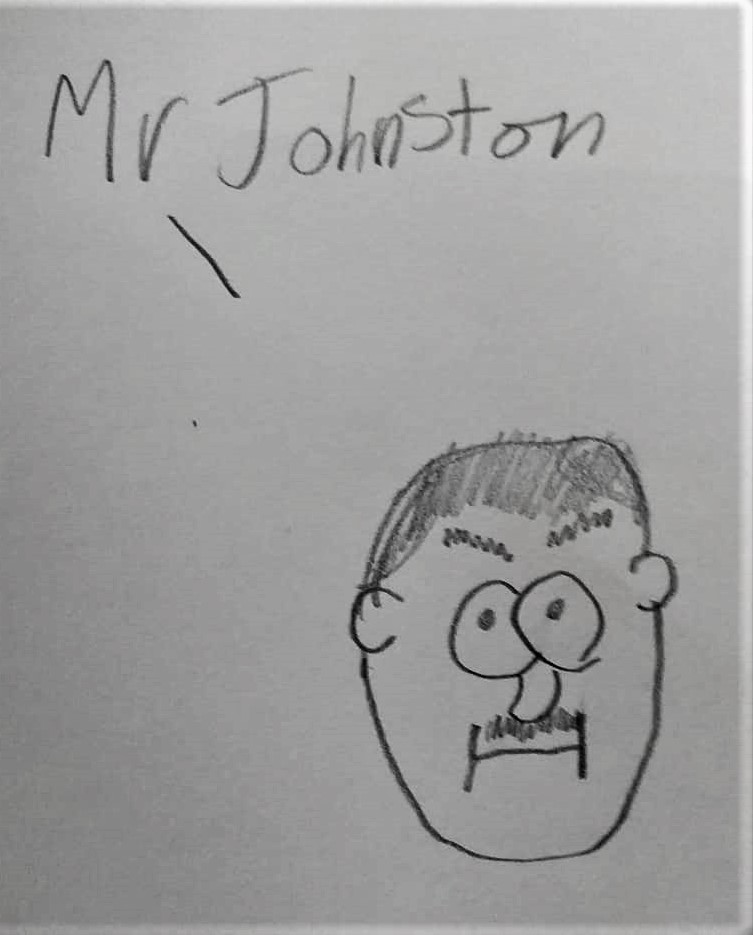 Mr Johnston